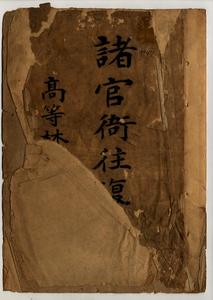 諸官衙往復
高等林